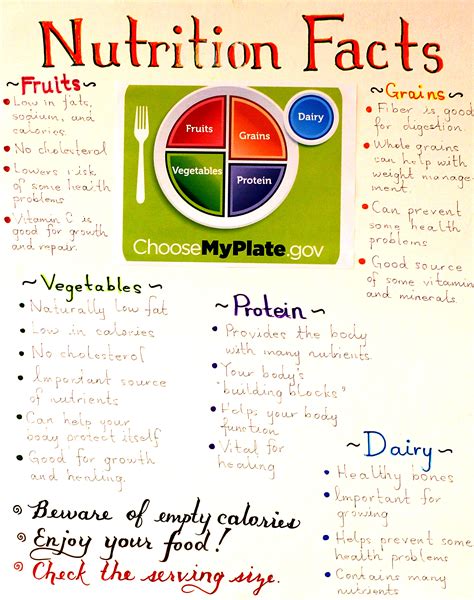 Nutrition Facts
~Fruits~
• Low in fats,
sodium, and
calories.
• No cholesterol
• Lowers risk
of some health
problems
• Vitamin C is
good for growth
and repair.
Fruits
Grains
Vegetables
Protein
Dairy
ChooseMyPlate.gov
~Grains~
• Fiber is good
for digestion
• Whole grains
can help with
weight manage-
ment.
• Can prevent
some health
problems
• Good source
of some vitamins
and minerals.
~Vegetables~
• Naturally low fat
• Low in calories
• No cholesterol
• Important source
of nutrients
• Can help your
body protect itself
• Good for growth
and healing.
~Protein~
• Provides the body
with many nutrients.
• Your body's
"building blocks"
• Helps your body
function
• Vital for
healing
~Dairy~
• Healthy bones
• Important for
growing
• Helps prevent some
health problems
• Contains many
nutrients
Beware of empty calories
Enjoy your food!
Check the serving size.